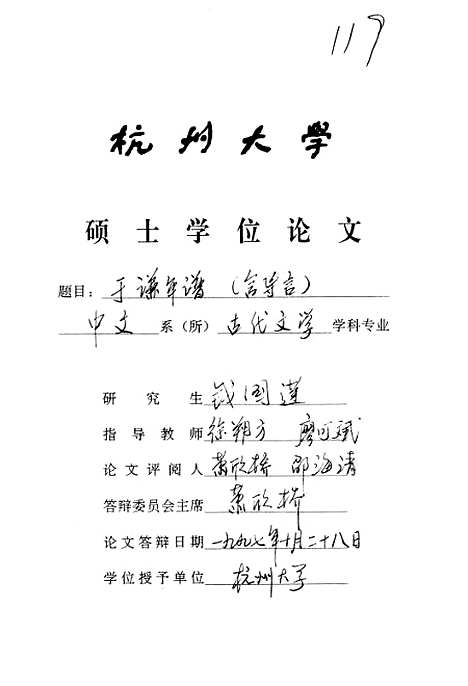 119
杭州大學
硕士学位论文
题目：于谦年谱（含导言）
中文系（所）古代文学学科专业
研究生 钱国莲
指导教师 徐朔方 廖可斌
论文评阅人 萧欣桥 邵海清
答辩委员会主席 萧欣桥
论文答辩日期 一九九七年十月二十八日
学位授予单位 杭州大学